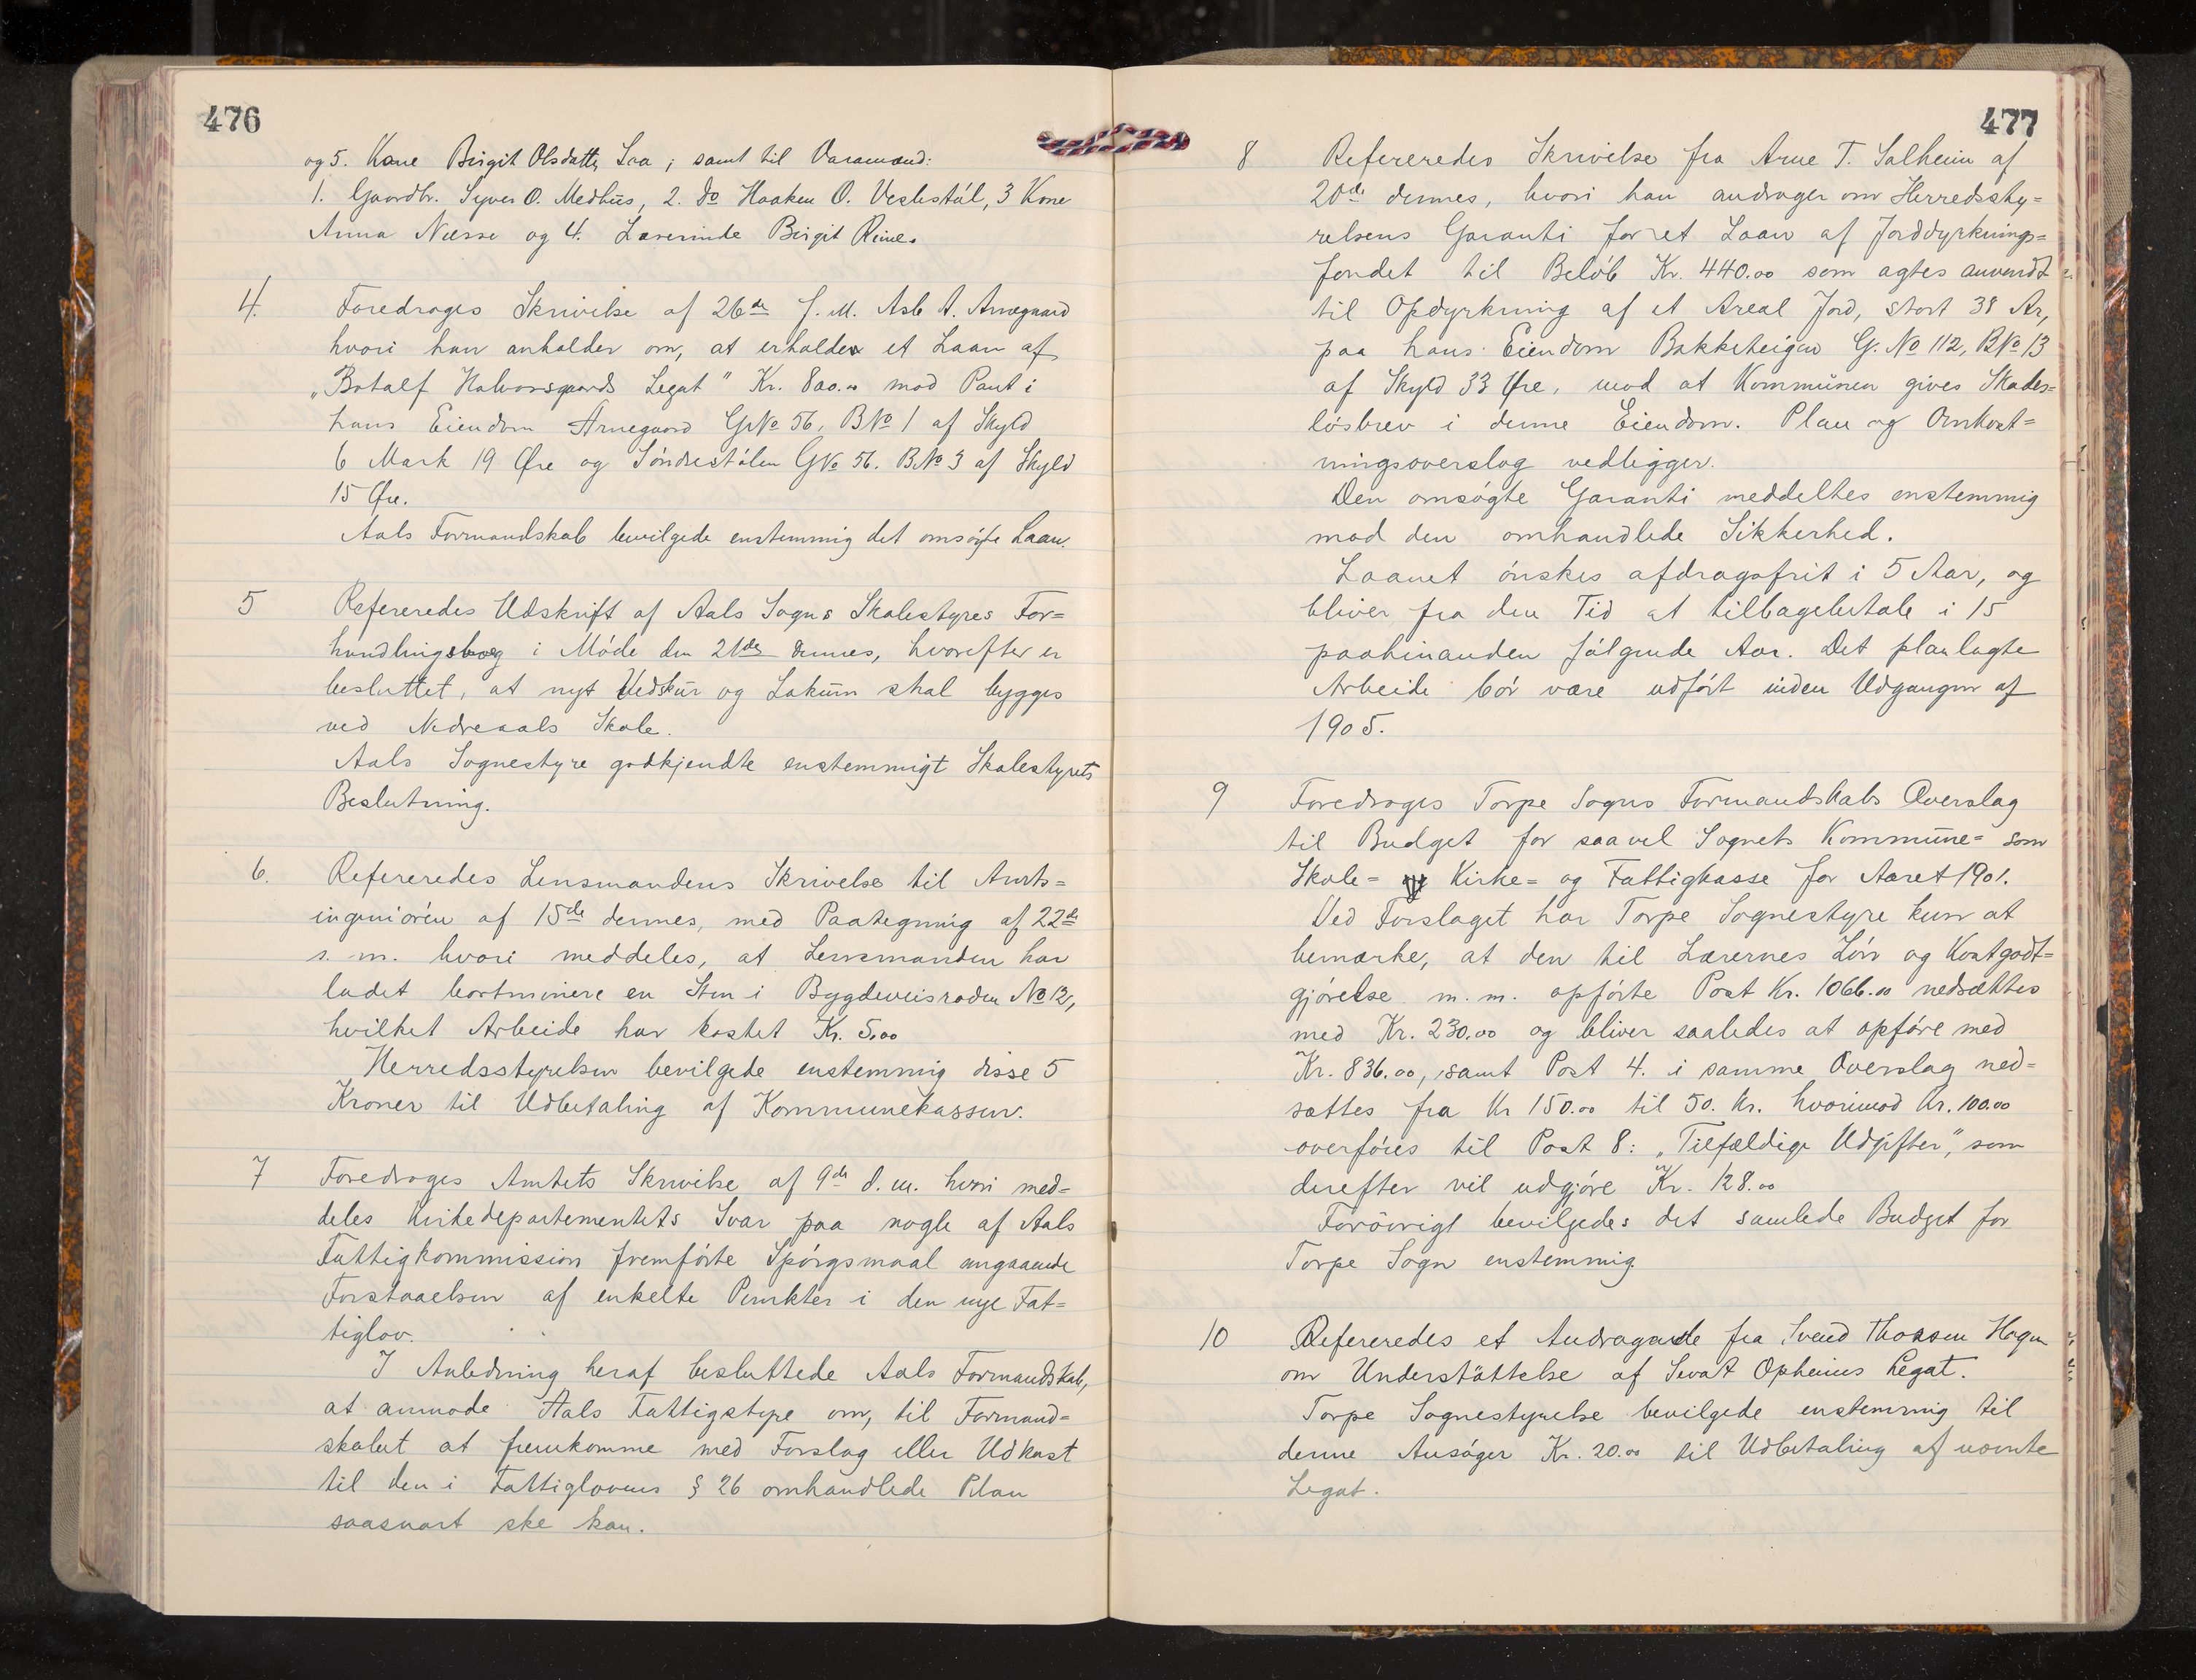 476
og 5. Kone Birgit Olsdatter Lra; samt til Varamænd:
1. Gaardbr. Syver O. Medhus, 2. do Haaken O. Veslestøl, 3 Kone
Anna Næsse og 4. Lærerinde Birgit Reine.
4. Foredroges Skrivelse af 26de f. M. Asle A. Arnegaard
hvori han anholder om, at erholdes et Laan af
„Botalf Halvorsgaards Legat" Kr. 800.00 mod Pant i
hans Eiendom Arnegaard GNo 56, BNo 1 af Skyld
6 Mark 19 Øre og Søndrestølen GNo 56. BNo 3 af Skyld
15 Øre.
Aals Formandskab bevilgede enstemmig det omsøgte Laan.
5 Refereredes Udskrift af Aals Sogns Skolestyres For=
handlingsbog i Møde den 21de dennes, hvorefter er
besluttet, at nyt Vedskur og Lokum skal bygges
ved Nedreaals Skole.
Aals Sognestyre godkjendte enstemmigt Skolestyrets
Beslutning.
6. Refereredes Lensmandens Skrivelse til Amts=
ingeniøren af 15de dennes, med Paategning af 22de
s. m. hvori meddeles, at Lensmanden har
ladet bortminere en Sten i Bygdeveisroden No 12,
hvilket Arbeide har kostet Kr. 5.00
Herredsstyrelsen bevilgede enstemmig disse 5
Kroner til Udbetaling af Kommunekassen.
7 Foredroges Amtets Skrivelse af 9de d. m. hvori med=
deles Kirkedepartementets Svar paa nogle af Aals
Fattigkommission fremførte Spørgsmaal angaaende
Forstaaelsen af enkelte Punkter i den nye Fat=
tiglov.
I Anledning heraf besluttede Aals Formandskab,
at anmode Aals Fattigstyre om, til Formand=
skabet at fremkomme med Forslag eller Udkast
til den i Fattiglovens § 26 omhandlede Plan
saasnart ske kan.
477
8 Refereredes Skrivelse fra Arne T. Solheim af
20de dennes, hvori han andrager om Herredssty=
relsens Garanti for et Laan af Jorddyrknings=
fondet til Beløb Kr. 440.00 som agtes anvendt
til Opdyrkning af et Areal Jord, stort 38 Ar,
paa hans Eiendom Bakketeigen G. No 112, BNo 13
af Skyld 33 Øre, mod at Kommunen gives Skades=
løsbrev i denne Eiendom. Plan og Omkost=
ningsoverslag vedligger.
Den omsøgte Garanti meddeltes enstemmig
mod den omhandlede Sikkerhed.
Laanet ønskes afdragsfrit i 5 Aar, og
bliver fra den Tid at tilbagebetale i 15
paahinanden følgende Aar. Det planlagte
Arbeide bør være udført inden Udgangen af
1905.
9 Foredroges Torpe Sogns Formandskabs Overslag
til Budget for saavel Sognets Kommune= som
Skole= Kirke= og Fattigkasse for Aaret 1901.
Ved Forslaget har Torpe Sognestyre kun at
bemærke, at den til Lærernes Løn og Kostgodt=
gjørelse m. m. opførte Post Kr. 1066.00 nedsættes
med Kr. 230.00 og bliver saaledes at opføre med
Kr. 836.00, samt Post 4. i samme Overslag ned=
sættes fra Kr 150.00 til 50. Kr. hvorimod Kr. 100.00
overføres til Post 8: „Tilfældige Udgifter", som
derefter vil udgjøre Kr. 128.00
Forøvrigt bevilgedes det samlede Budget for
Torpe Sogn enstemmig.
10 Refereredes et Andragende fra Svend Thossen Hagen
om Understøttelse af Sevat Opheims Legat.
Torpe Sognestyrelse bevilgede enstemmig til
denne Ansøger Kr. 20.00 til Udbetaling af nævnte
Legat.